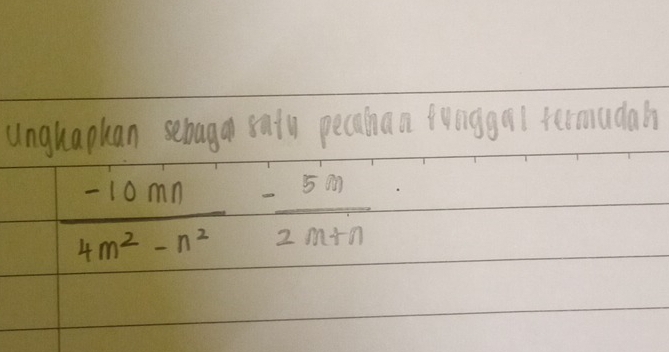 Ungkapkan sebagai satu pecahan tunggal termudah
-10 mn / 4m² - n² - 5m / 2m+n .